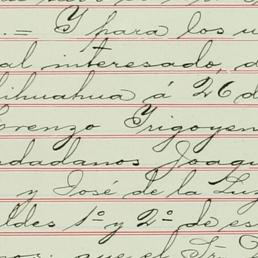 .= Y para los u
al interesado, d
hihuahua á 26 d
orenzo Yrigoyen
dadanos Joaqu
y José de la Luz
ldes 1º y 2º de es
nos: que el Sr.